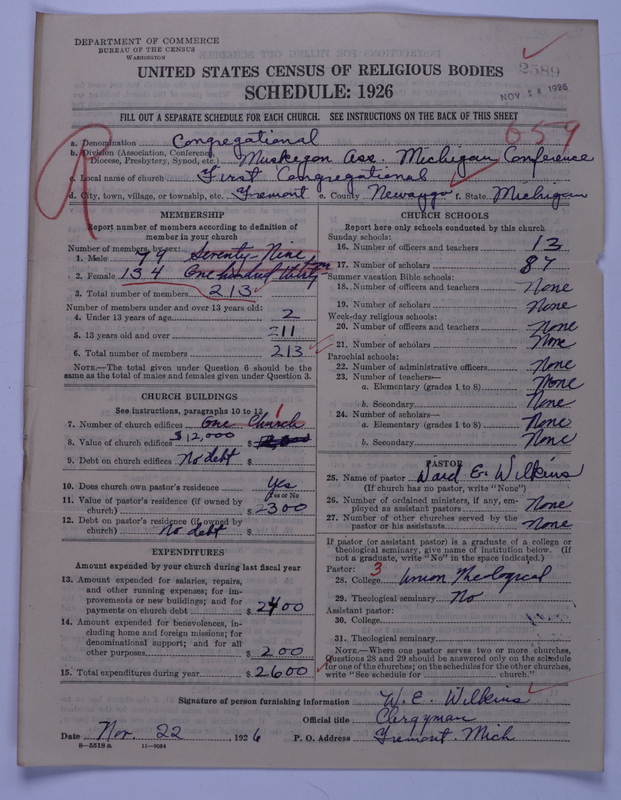 DEPARTMENT OF COMMERCE
BUREAU OF THE CENSUS
WASHINGTON
2589
NOV 24 1926
UNITED STATES CENSUS OF RELIGIOUS BODIES
SCHEDULE: 1926
FILL OUT A SEPARATE SCHEDULE FOR EACH CHURCH. SEE INSTRUCTIONS ON THE BACK OF THIS SHEET
659
R
a. Denomination Congregational
b. Division (Association, Conference, Diocese, Presbytery, Synod, etc.) Muskegon Ass. Michigan Conference
c. Local name of church First Congregational
d. City, town, village, or township, etc. Fremont e. County Newaygo f. State Michigan
MEMBERSHIP
Report number of members according to definition of
member in your church
Number of members by sex:
1. Male 79 Seventy-Nine
2. Female 134 One hundred thirty
3. Total number of members 213
Number of members under and over 13 years old:
4. Under 13 years of age 2
5. 13 years old and over 211
6. Total number of members 213
NOTE.—The total given under Question 6 should be
same as the total of males and females given under Question 3.
CHURCH BUILDINGS
See instructions, paragraphs 10 to 12
7. Number of church edifices One Church 1
8. Value of church edifices $12,000 $
9. Debt on church edifices No debt $
10. Does church own pastor's residence Yes
Yes or No
11. Value of pastor's residence (if owned by
church) $ 2300
12. Debt on pastor's residence (if owned by
church) No debt $
EXPENDITURES
Amount expended by your church during last fiscal year
13. Amount expended for salaries, repairs,
and other running expenses; for im-
provements or new buildings; and for
payments on church debt $ 2400
14. Amount expended for benevolences, in-
cluding home and foreign missions; for
denominational support; and for all
other purposes $ 200
15. Total expenditures during year $ 2600
CHURCH SCHOOLS
Report here only schools conducted by this church
Sunday schools:
16. Number of officers and teachers 13
17. Number of scholars 87
Summer vacation Bible schools:
18. Number of officers and teachers None
19. Number of scholars None
Week-day religious schools:
20. Number of officers and teachers None
21. Number of scholars None
Parochial schools:
22. Number of administrative officers None
23. Number of teachers—
a. Elementary (grades 1 to 8) None
b. Secondary None
24. Number of scholars—
a. Elementary (grades 1 to 8) None
b. Secondary None
PASTOR
25. Name of pastor Ward E. Wilkins
(If church has no pastor, write "None")
26. Number of ordained ministers, if any, em-
ployed as assistant pastors None
27. Number of other churches served by the
pastor or his assistants None
If pastor (or assistant pastor) is a graduate of a college or
theological seminary, give name of institution below. (If
not a graduate, write "No" in the space indicated.)
Pastor: 3
28. College Union Theological
29. Theological seminary No
Assistant pastor:
30. College
31. Theological seminary
NOTE.—Where one pastor serves two or more churches,
Questions 28 and 29 should be answered only on the schedule
for one of the churches; on the schedules for the other churches,
write "See schedule for church."
Signature of person furnishing information W. E. Wilkins
Official title Clergyman
Date Nov. 22, 1926 P. O. Address Fremont. Mich
8-5518a 11-9084